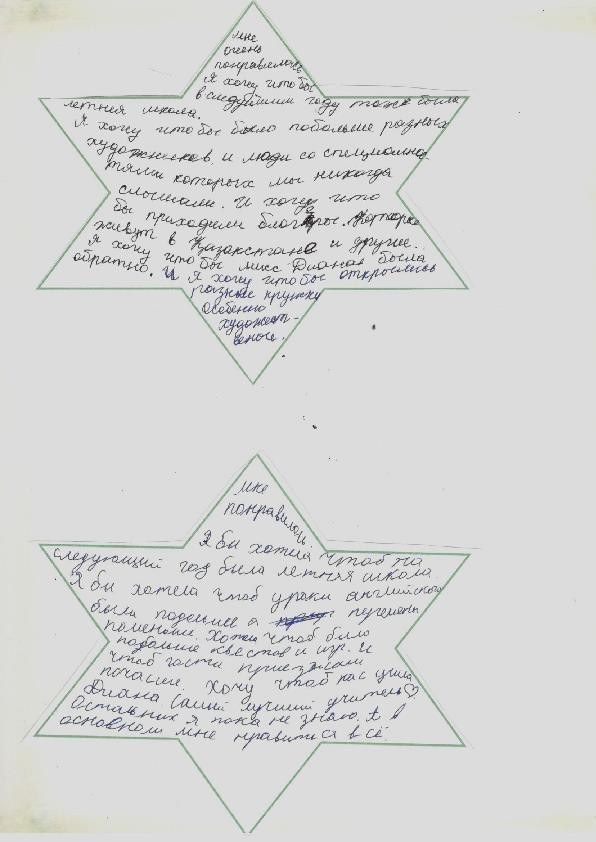 мне
очень
понравилось
Я хочу чтобы
в следуйший году тоже была
летняя школа.
Я хочу чтобы было побольше разных
художников и люди со специално-
тями которых мы никогда
слышали. И хочу что
бы приходили блогеры. Которые
живут в Казахстане и другие..
Я хочу что бы мисс Диана была
обратно. И Я хочу чтобы открылись
разные кружки
особенно
художест-
веные.
мне
понравилось.
Я бы хотела чтоб на
следующий год была летняя школа
Я бы хотела чтоб уроки английского
были подольше а перемены
поменьше. Хочу чтоб было
побольше квестов и игр. И
чтоб гости приезжали
почаще. хочу чтоб нас учила
Диана. Самый лучший учитель♡
Остальных я пока не знаю. А в
основном мне нравится всё.